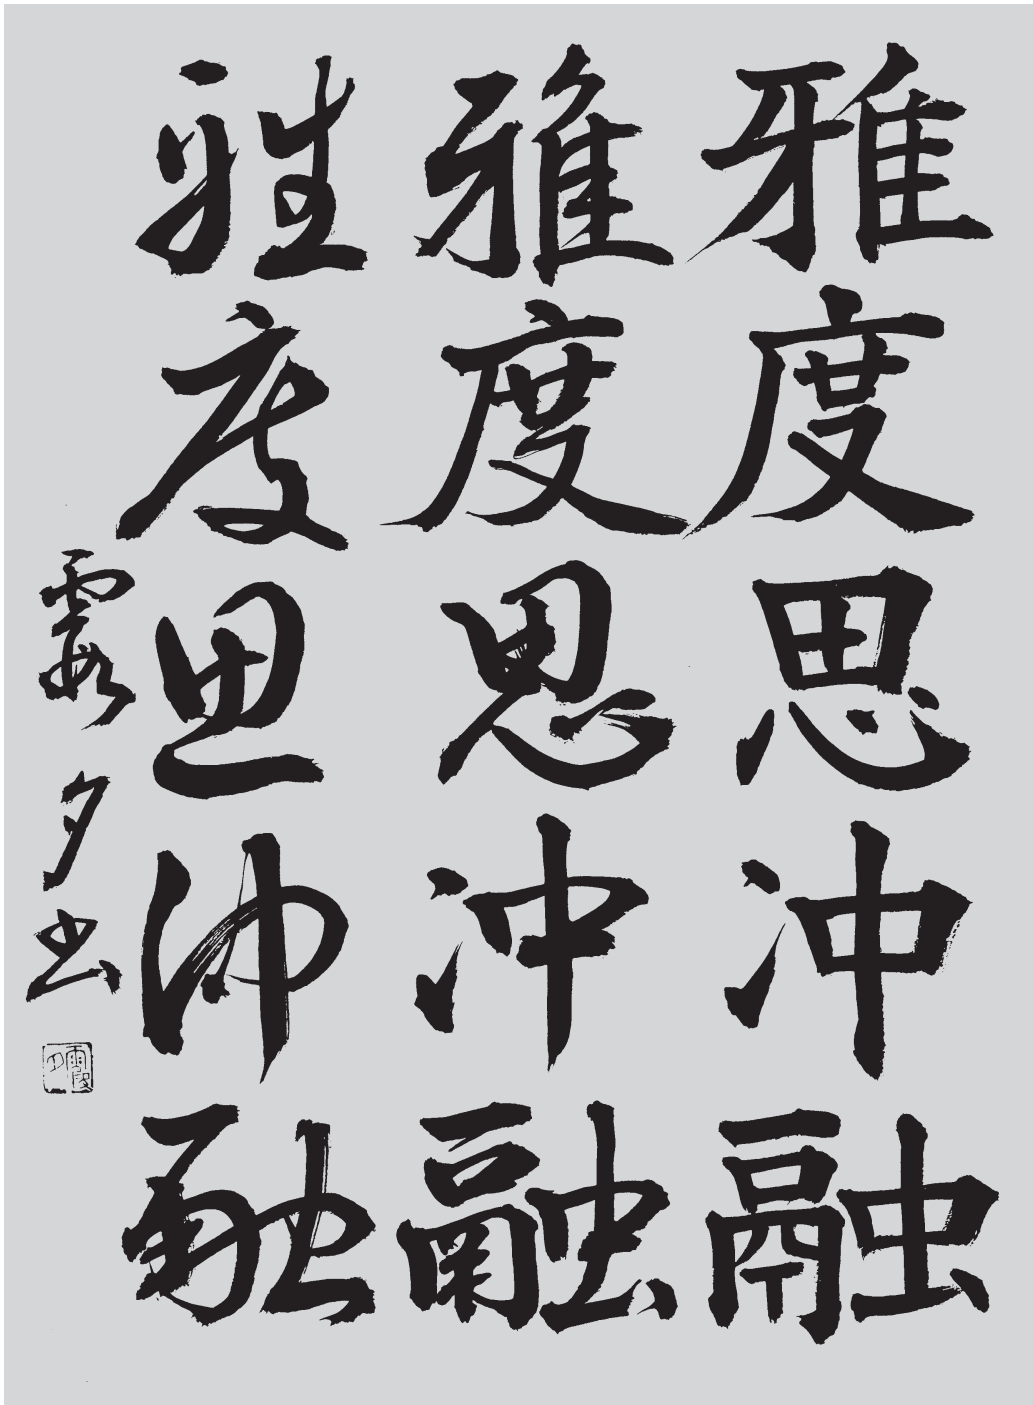 雅度思沖融
雅度思沖融
雅度思沖融
霞夕書
霞夕